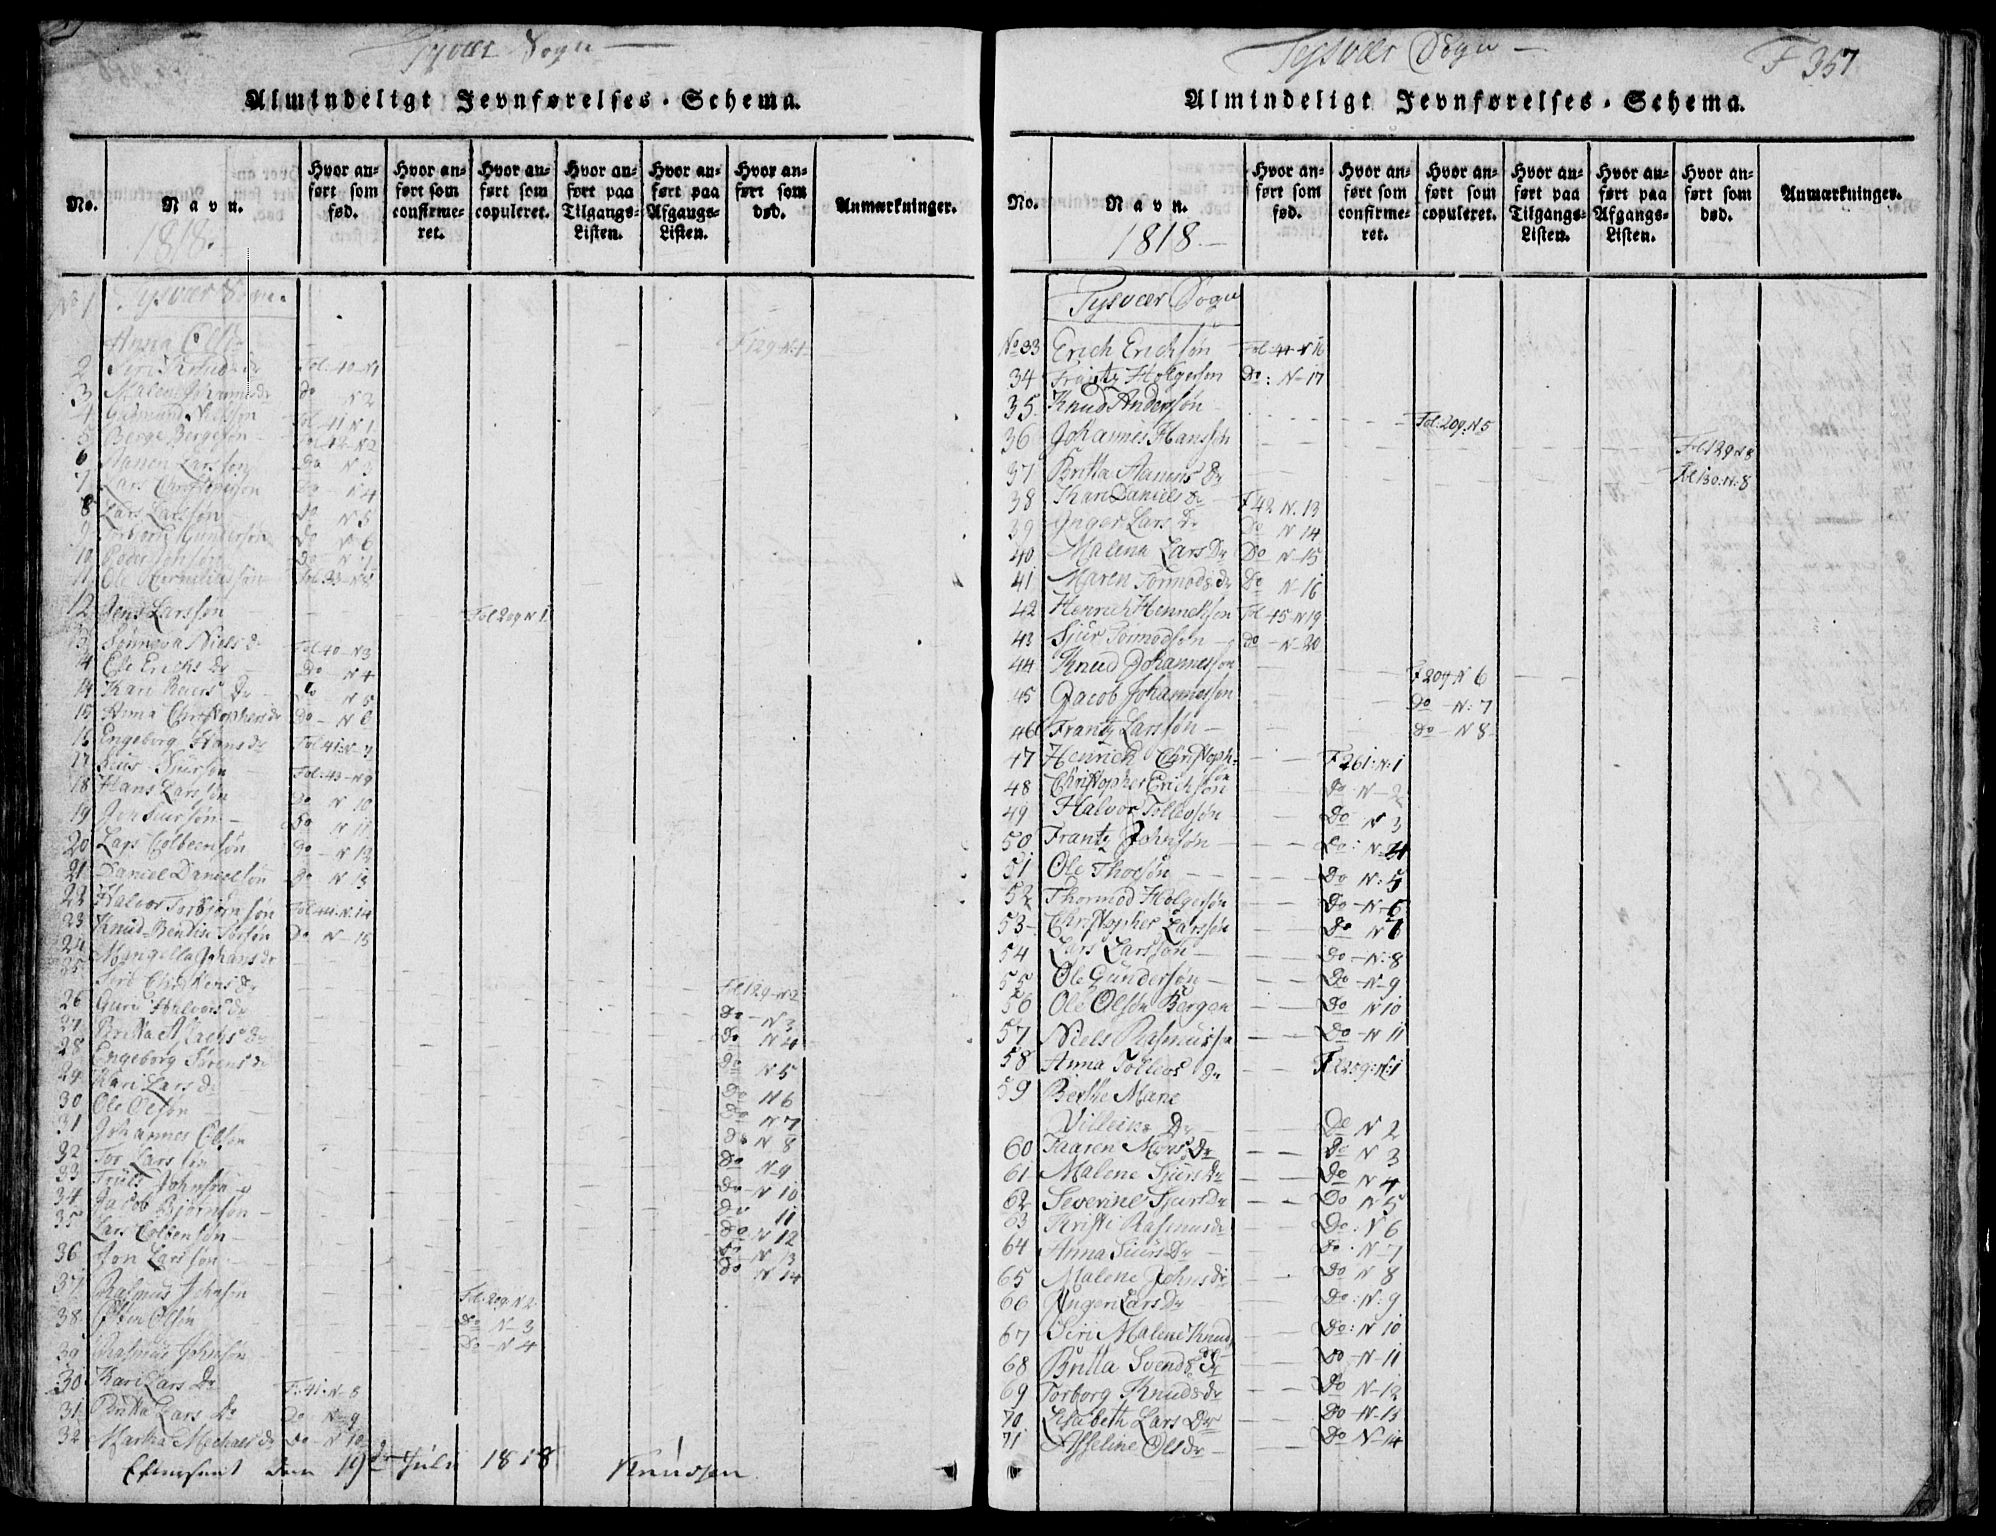 Tysvær Sogn
Almindeligt Jevnførelses-Schema.
No.
Navn.
1818.
Hvor anført som fød.
Hvor anført som confirmeret.
Hvor anført som copuleret.
Hvor anført paa Tilgangs-Listen.
Hvor anført paa Afgangs-Listen.
Hvor anført som død.
Anmærkninger.
No 1 Tysvær Sogn.
Anna F 129 N. 1
2 Siri Knudsdr Fol. 40 N 1
3 Malene Do N 2
4 Gudmund Nielssøn Fol. 41 N 1
5 Berge Bergesøn Fol. 42 N 2
6 Aanen Larssøn Do N 3
7 Lars Do N 4
8 Lars Larssøn Do N 5
9 Torbjørn Gundersøn Do N 6
10 Peder Johnsøn Do N 7
11 Ole Corneliussøn Fol. 43 N 8
12 Jens Larssøn Fol 209 N 1
13 Niels Dr Fol 40 N 3
14 Eli Erichs Dr Do N 4
14 Kari Dr Do N 5
15 Anna Christophersdr Do N 6
16 Engeborg Hans Dr Fol. 41. N 7
17 Siursøn Fol. 43 N 9
18 Hans Larssøn Do N 10
19 Jon Siursøn Do N 11
20 Lars Colbeensøn Do N 12
21 Daniel Danielsøn Do N 13
22 Halvor Torbjørnsøn Fol. 44. N. 14
23 Knud Do N 15
24
25 Fol 129 N 2
26 Guri Halvors dr Do N 3
27 Britta Do N 4
28 Engeborg Sørensdr Do N 5
29 Kari Lars dr Do N 6
30 Ole Olsøn Do N 7
31 Johannes Olsøn Do N 8
32 Tor Larssøn Do N 9
33 Truls Johnsøn Do N 10
34 Jacob Bjørnsøn Do 11
35 Lars Colbensøn Do N 12
36 Jon Larssøn Do N 13
Do N 14
37 Rasmus Johnsøn Fol. 209. N 2
38 Olsøn Do N 3
39 Rasmus Johnsøn Do N 4
30 Kari Lars Dr F. 41. N 8
31 Britta Lars Dr Do N 9
32 Martha Michelsdr Do N 10
Efterseet den 19de Juli 1818 Knudsen
Tysvær Sogn
F 357
Almindeligt Jevnførelses-Schema.
No.
Navn.
1818
Hvor anført som fød.
Hvor anført som confirmeret.
Hvor anført som copuleret.
Hvor anført paa Tilgangs-Listen.
Hvor anført paa Afgangs-Listen.
Hvor anført som død.
Anmærkninger.
Tysvær Sogn
No 33 Erich Erichsøn Fol. 44 N 16
34 Frantz Holgersøn Do: N 17
35 Knud Andersøn Fol. 209. N 5
36 Johannes Hanssøn Fol 129 N 8
37 Britta Aanens Dr Fol 130. N. 8
38 Kari Daniels Dr F 42 N. 13
39 Inger Lars Dr Do N 14
40 Malena Lars Dr Do N 15
41 Maren Tormods dr Do N 16
42 Henrich Henrichsøn Fol 45 N 19
43 Sjur Tormodsøn Do N 20
44 Knud Johannessøn F 209 N 6
45 Jacob Johannessøn Do N. 7
46 Frantz Larssøn Do N 8
47 Henrich Christoph: søn F 261. N. 1
48 Christopher Erichsøn Do N 2
49 Halvor Tollevsøn Do N 3
50 Frantz Johnsøn Do: N 4
51 Ole Thorsøn Do N. 5
52 Thormod Holgersøn Do N 6
53 Christopher Larssøn Do N
54 Lars Larssøn Do N. 8
55 Ole Gundersøn Do N 9
56 Ole Olsøn Bergen Do N 10
57 Niels Rasmussøn Do N 11
58 Anna Tollevs Dr
59 Berthe Marie
Villeiks Dr Do N 2
60 Taaren Mons Dr Do N 3
61 Malene Sjurs Dr Do N 4
62 Severine Sjurs Dr Do N 5
63 Kristi Rasmusdr Do: N 6
64 Anna Siurs Dr Do. N 7
65 Malene Johns Dr Do N 8
66 Ingeri Lars Dr Do: N. 9
67 Siri Malene Knuds Dr Do: N 10
68 Britta Svends Dr Do N 11
69 Torborg Knudsdr Do N 12
70 Lisabeth Lars Dr Do N 13
71 Asseline Ols dr Do N 14